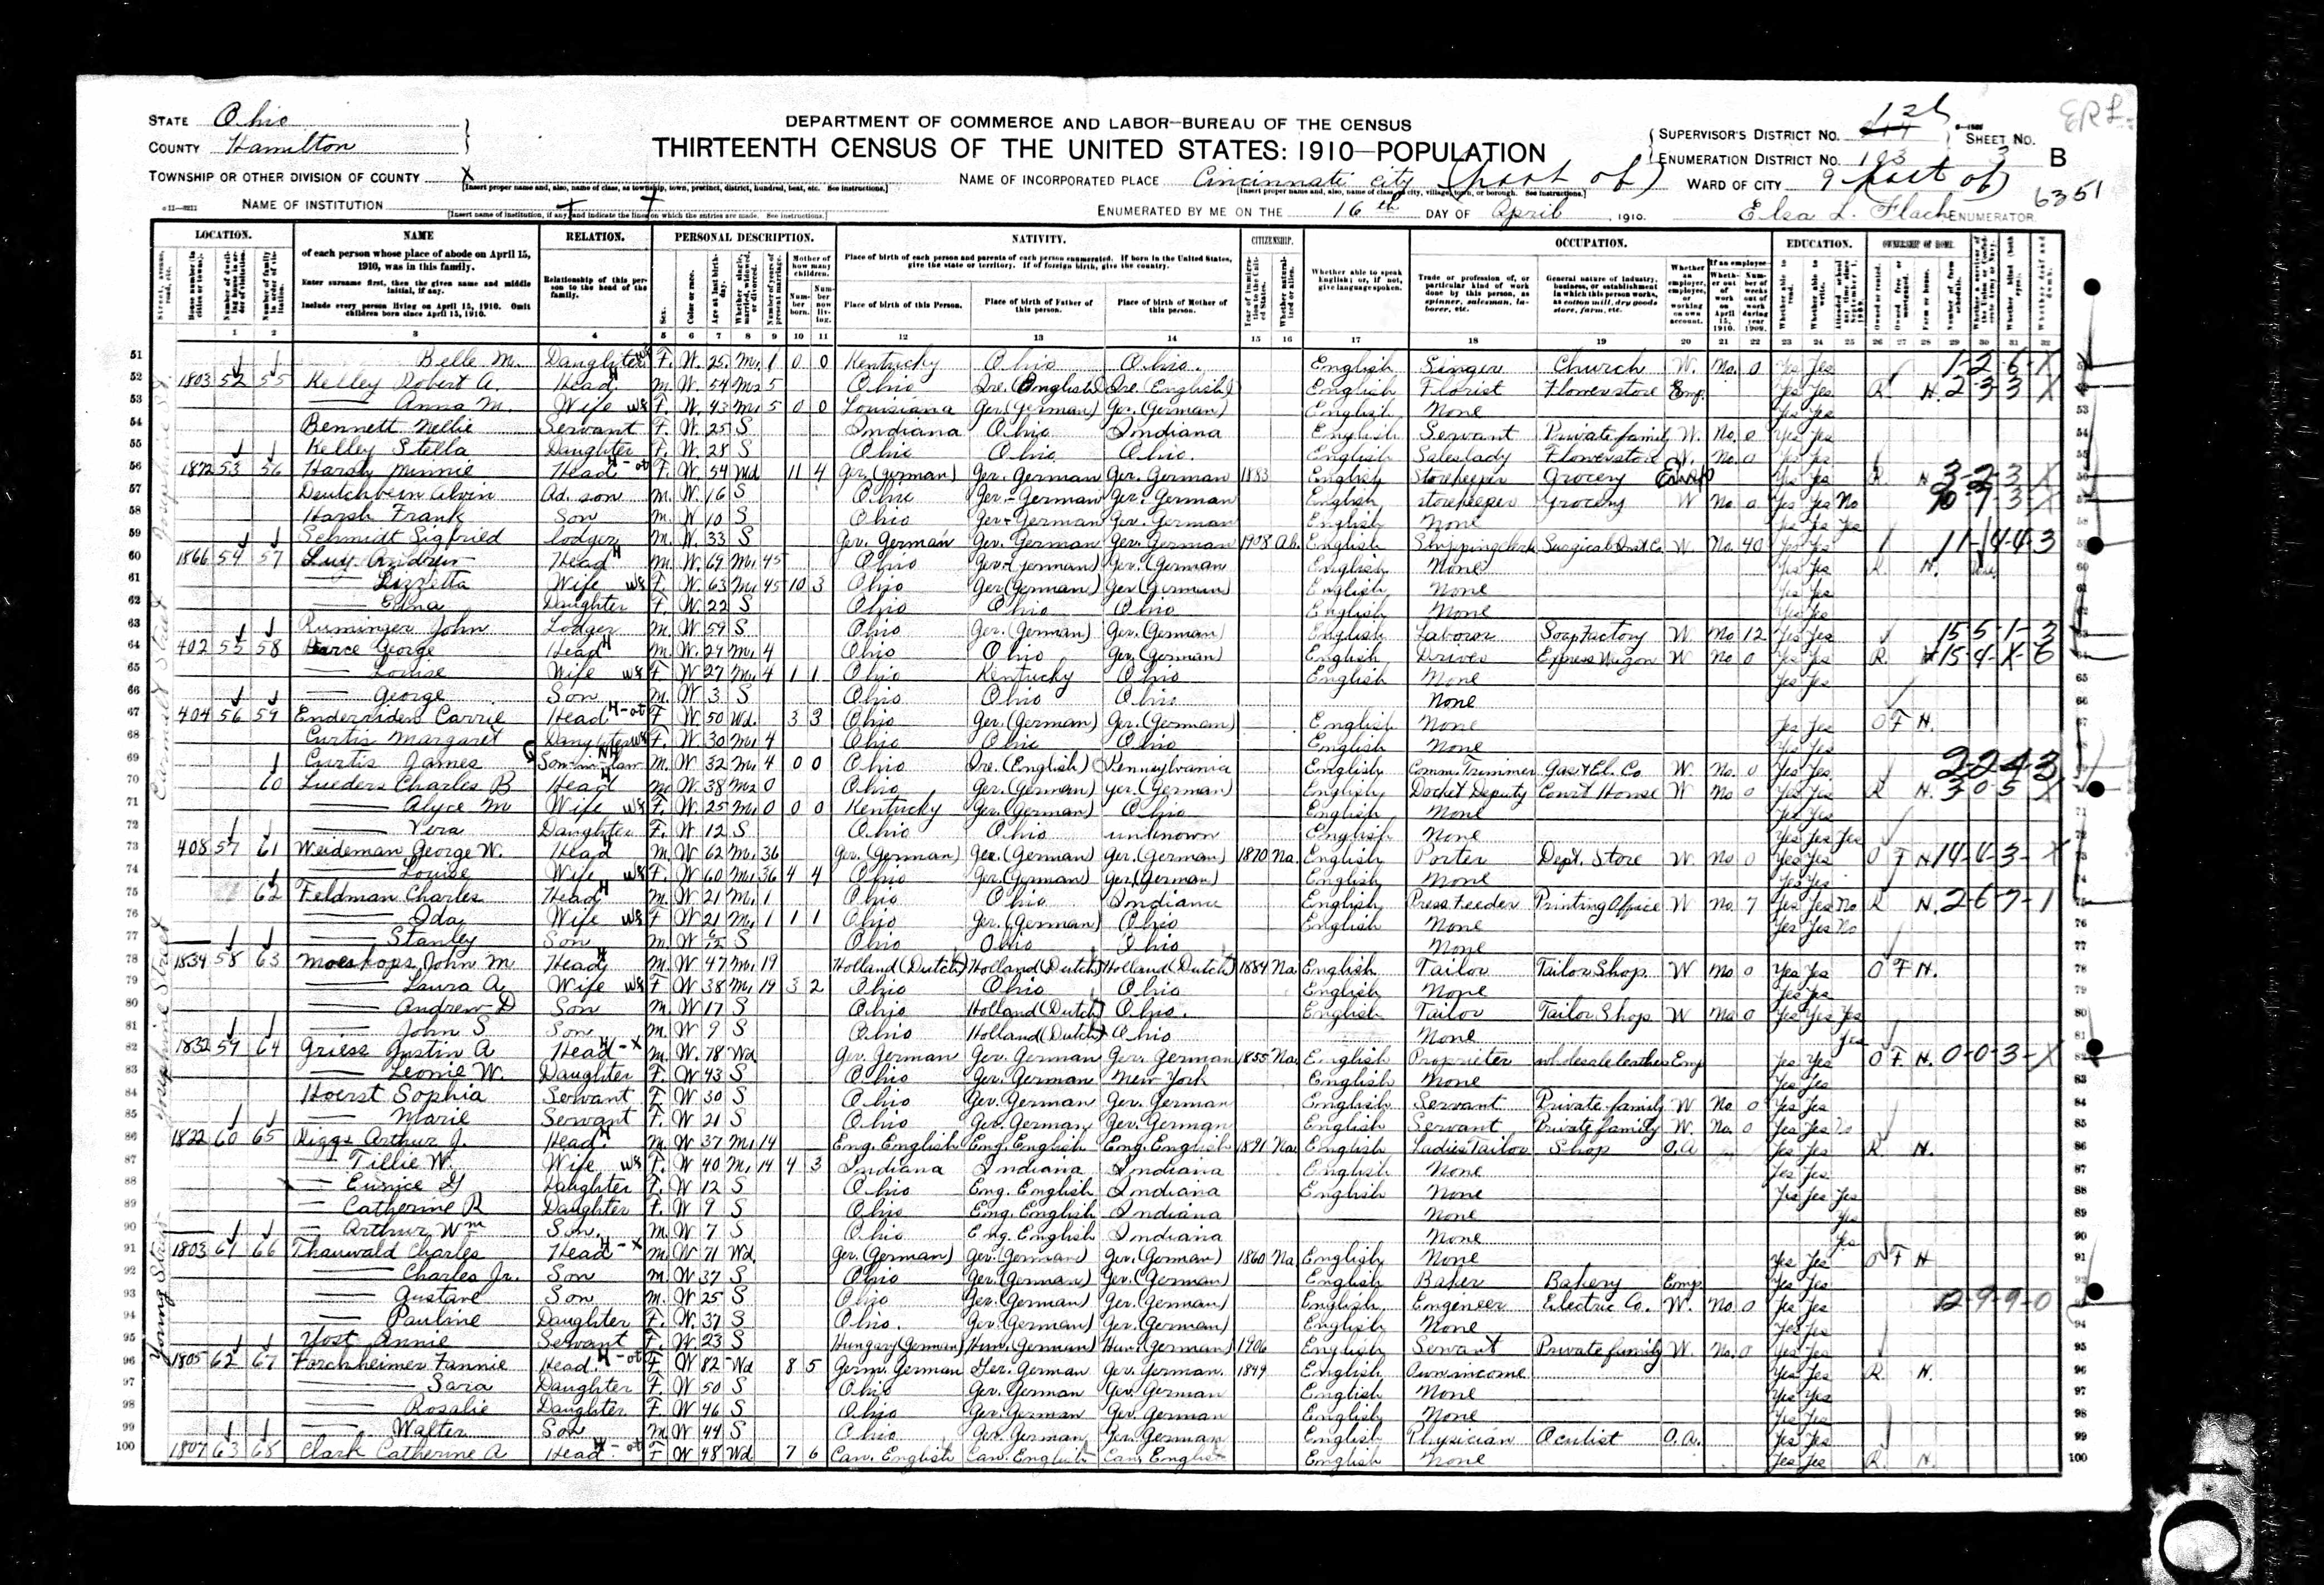 STATE Ohio
COUNTY Hamilton
TOWNSHIP OR OTHER DIVISION OF COUNTY X
[Insert proper name and, also, name of class, as township, town, precinct, district, hundred, beat, etc. See instructions.]
NAME OF INSTITUTION X
[Insert name of institution, if any, and indicate the lines on which the entries are made. See instructions.]
DEPARTMENT OF COMMERCE AND LABOR—BUREAU OF THE CENSUS
THIRTEENTH CENSUS OF THE UNITED STATES: 1910—POPULATION
NAME OF INCORPORATED PLACE Cincinnati city (part of)
ENUMERATED BY ME ON THE 16th DAY OF April, 1910.
SUPERVISOR'S DISTRICT NO.
ENUMERATION DISTRICT NO. 103
SHEET NO. 3 B
WARD OF CITY 9 (part of)
Elsa L. Flach ENUMERATOR.
6351
LOCATION. NAME RELATION. PERSONAL DESCRIPTION. NATIVITY. CITIZENSHIP. OCCUPATION. EDUCATION. OWNERSHIP OF HOME.
of each person whose place of abode on April 15, 1910, was in this family.
Enter surname first, then the given name and middle initial, if any.
Include every person living on April 15, 1910. Omit children born since April 15, 1910.
Relationship of this person to the head of the family.
Place of birth of each person and parents of each person enumerated. If born in the United States, give the state or territory. If of foreign birth, give the country.
Place of birth of this Person. Place of birth of Father of this person. Place of birth of Mother of this person.
Whether able to speak English; or, if not, give language spoken.
Trade or profession of, or particular kind of work done by this person, as spinner, salesman, laborer, etc.
General nature of industry, business, or establishment in which this person works, as cotton mill, dry goods store, farm, etc.
51 Belle M. Daughter F. W. 25 M1 1 0 0 Kentucky Ohio Ohio. English Singer Church W. No. 0 Yes Yes 1-2-6-X
52 1803 52 55 Kelley Robert A. Head M. W. 54 M2 5 Ohio Ire. (English) Ire. English) English Florist Flower store Emp. Yes Yes R. H. 2-3-3 X
53 Anna M. Wife F. W. 43 M1 5 0 0 Louisiana Ger. (German) Ger. (German) English None Yes Yes
54 Bennett Nellie Servant F. W. 25 S Indiana Ohio Indiana English Servant Private family W. No. 0 Yes Yes
55 Kelley Stella Daughter F. W. 28 S Ohio Ohio Ohio. English Saleslady Flower store W. No. 0 Yes Yes
56 1872 53 56 Harsh Minnie Head F. W. 54 Wd 11 4 Ger. (German) Ger. German Ger. German 1883 English Storekeeper Grocery Emp Yes Yes R H 3-2-3 X
57 Deutchbein Alvin Ad. son M. W. 16 S Ohio Ger. German Ger. German English storekeeper Grocery W No 0 Yes Yes No
58 Harsh Frank Son M. W 10 S Ohio Ger. German Ger. German English None Yes Yes Yes
59 Schmidt Sigfried Lodger M. W. 33 S Ger. German Ger. German Ger. German 1908 Al. English Shipping clerk Surgical Inst. Co. W. No. 40 Yes Yes 11-4-4-3
60 1866 54 57 Luy Andrew Head M. W. 69 M1 45 Ohio Ger. (German) Ger. (German English None Yes Yes R. H.
61 Lizzetta Wife F. W. 63 M1 45 10 3 Ohio Ger (German) Ger (German) English None Yes Yes
62 Edna Daughter F. W. 22 S Ohio Ohio Ohio English None Yes Yes
63 Ruminger John Lodger M. W. 59 S Ohio Ger. (German) Ger. (German) English Laborer Soap Factory W. No 12 Yes Yes 15 5-1-3
64 402 55 58 Pearce George Head M. W. 29 M1 4 Ohio Ohio Ger. (German) English Driver Express Wagon W No 0 Yes Yes R. 15-4-X-6
65 Louise Wife F W 27 M1 4 1 1 Ohio Kentucky Ohio English None Yes Yes
66 George Son M. W 3 S Ohio Ohio Ohio None
67 404 56 59 Enderriden Carrie Head F W. 50 Wd. 3 3 Ohio Ger. (German) Ger. (German) English None Yes Yes O F H.
68 Curtis Margaret Daughter F. W. 30 M1 4 Ohio Ohio Ohio English None Yes Yes
69 Curtis James Son-in-law M. W. 32 M1 4 0 0 Ohio Ire. (English) Pennsylvania English Comm. Trimmer Gas & El. Co W. No. 0 Yes Yes 2-2-4-3
70 60 Lueders Charles B Head M. W. 38 M2 0 Ohio Ger. (German) Ger. (German) English Docket Deputy Court House W No 0 Yes Yes R H. 3 0-5 X
71 Alyce M Wife F. W. 25 M1 0 0 0 Kentucky Ger. (German) Ohio English None Yes Yes
72 Vera Daughter F. W. 12 S Ohio Ohio unknown English None Yes Yes Yes
73 408 57 61 Weideman George W. Head M. W 62 M1 36 Ger. (German) Ger. (German) Ger. (German) 1870 Na. English Porter Dept. Store W. No 0 Yes Yes O F H 14-6-3-X
74 Louise Wife F. W. 60 M1 36 4 4 Ohio Ger. (German) Ger. (German) English None Yes Yes
75 62 Feldman Charles Head M. W 21 M1 1 Ohio Ohio Indiana English Press Feeder Printing Office W No. 7 Yes Yes No R H. 2-6-7-1
76 Ida Wife F W 21 M1 1 1 1 Ohio Ger. (German) Ohio English None Yes Yes No
77 Stanley Son M. W S Ohio Ohio Ohio None
78 1834 58 63 Moeskops John M Head M. W 47 M1 19 Holland (Dutch) Holland (Dutch) Holland (Dutch) 1884 Na English Tailor Tailor Shop W No 0 Yes Yes O F H.
79 Laura A. Wife F W 38 M1 19 3 2 Ohio Ohio Ohio English None Yes Yes
80 Andrew D Son M. W 17 S Ohio Holland (Dutch) Ohio. English Tailor Tailor Shop W No 0 Yes Yes Yes
81 John S Son M. W 9 S Ohio Holland (Dutch) Ohio None Yes
82 1832 59 64 Griess Justin A Head M. W. 78 Wd Ger. German Ger. German Ger. German 1855 Na. English Proprieter wholesale leather Emp Yes Yes O F H. 0-0-3-X
83 Leonie W. Daughter F. W 43 S Ohio Ger. German New York English None Yes Yes
84 Hoerst Sophia Servant F. W 30 S Ohio Ger. German Ger. German English Servant Private family W. No 0 Yes Yes
85 Marie Servant F. W 21 S Ohio Ger. German Ger. German English Servant Private family W. No. 0 Yes Yes No
86 1822 60 65 Riggs Arthur J. Head M. W 37 M1 14 Eng. English Eng. English Eng. English 1891 Na English Ladies Tailor Shop O.A Yes Yes R. H.
87 Tillie W. Wife F. W 40 M1 14 4 3 Indiana Indiana Indiana English None Yes Yes
88 Eunice Daughter F. W 12 S Ohio Eng. English Indiana English None Yes Yes Yes
89 Catherine R Daughter F. W 9 S Ohio Eng. English Indiana None Yes
90 Arthur Wm Son. M. W 7 S Ohio Eng. English Indiana None Yes
91 1803 61 66 Thauwald Charles Head M. W 71 Wd. Ger. (German) Ger. (German) Ger. (German) 1860 Na English None Yes Yes O F H
92 Charles Jr. Son M. W 37 S Ohio Ger. (German) Ger. (German) English Baker Bakery Emp Yes Yes
93 Gustave Son M. W 25 S Ohio Ger. (German) Ger. (German) English Engineer Electric Co. W. No. 0 Yes Yes 12-9-9-0
94 Pauline Daughter F. W. 37 S Ohio. Ger. (German) Ger. (German) English None Yes Yes
95 Yost Annie Servant F. W. 23 S Hungary (German) Hun. (German) Hun. (German) 1906 English Servant Private family W. No. 0 Yes Yes
96 1805 62 67 Forchheimer Fannie Head. F W 82 Wd 8 5 Germ. German Ger. German Ger. German. 1849 English Own income Yes Yes R. H.
97 Sara Daughter F. W 50 S Ohio Ger. German Ger. German English None Yes Yes
98 Rosalie Daughter F. W 46 S Ohio Ger. German Ger. German English None Yes Yes
99 Walter Son M W 44 S Ohio Ger. German Ger. German English Physician Oculist O.A. Yes Yes
100 1807 63 68 Clark Catherine A Head F W 48 Wd 7 6 Can. English Can. English Can. English English None Yes Yes R. H.